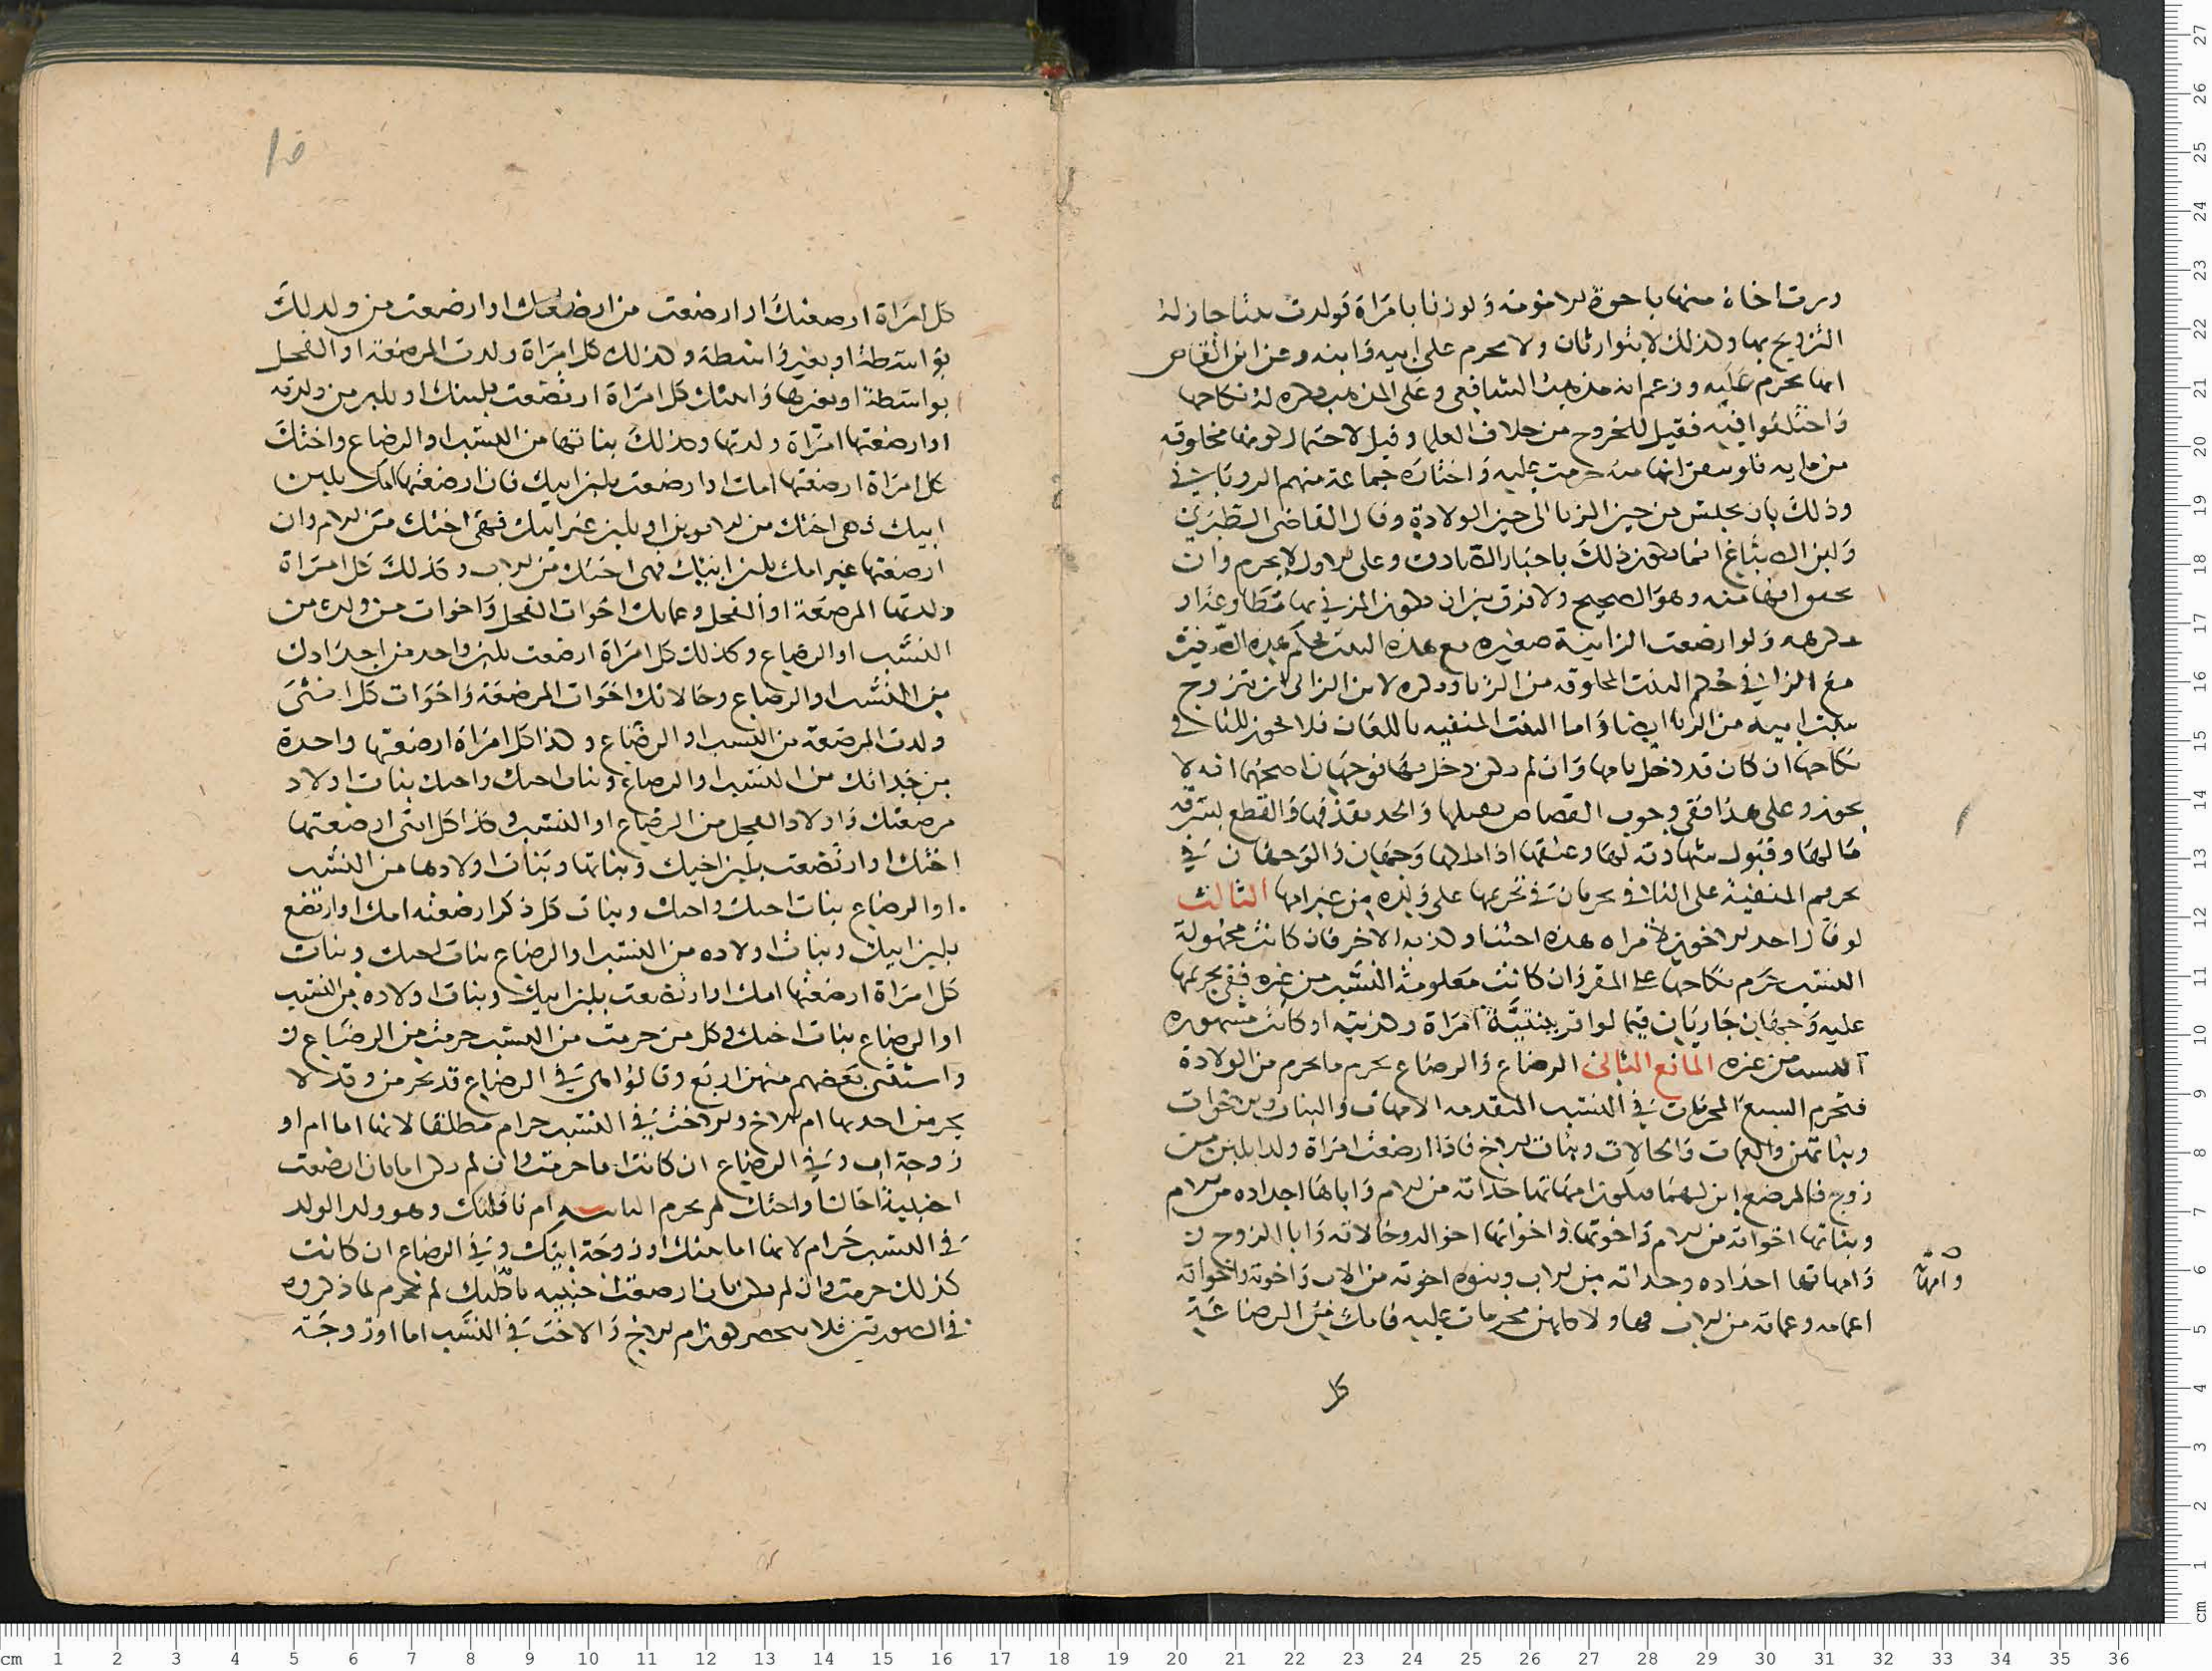 ويرث اخاه منها باخوة الامومة ولو زنا بامراة فولدت بنتا جاز له
التزويج بها وكذلك لا يتوارثان ولا تحرم على ابيه وابنه وعن ابن القاص
انها تحرم عليه وزعم انه مذهب الشافعي وعلى المذهب يكره له نكاحها
واختلفوا فيه فقيل للخروج من خلاف العلما وقيل لاحتمال كونها مخلوقه
من مايه فلو تيقن انها منه حرمت عليه واختاره جماعة منهم الروياني
وذلك بان يحبس من حين الزنا الى حين الولادة وقال القاضي الطبري
وابن الصباغ انما يكون ذلك باخبار الصادق وعلى الاول لا يحرم وان
تحقق انها منه وهو الصحيح ولا فرق بين ان يكون المزني بها مطاوعة او
مكرهه ولو ارضعت الزانية صغيره مع هذه البنت فحكم هذه الصغيرة
مع الزاني حكم البنت المخلوقه من الزنا ويكره لابن الزاني ان يتزوج
ببنت ابيه من الزنا ايضا واما البنت المنفيه باللعان فلا يجوز للنافي
نكاحها ان كان قد دخل بامها وان لم يكن دخل بها فوجهان اصحهما انه لا
يجوز وعلى هذا ففي وجوب القصاص بقتلها والحد بقذفها والقطع بسرقة
مالها وقبول شهادته لها وعتقها اذا ملكها وجهان والوجهان في
تحريم المنفية على النافي يجريان في تحريمها على ولده من غير امها الثالث
لو قال احد الاخوين لامراه هذه اختنا وكذبه الاخر فان كانت مجهولة
النسب حرم نكاحها على المقر وان كانت معلومة النسب من غيره ففي تحريمها
عليه وجهان جاريان فيما لو اقر ببنتية امراة وكذبته او كانت مشهوره
النسب من غيره المانع الثاني الرضاع والرضاع يحرم ما يحرم من الولادة
فتحرم السبع المحرمات في النسب المتقدمه الامهات والبنات والاخوات
وبناتهن والعمات والخالات وبنات الاخ فاذا ارضعت امراة ولدا بلبن من
زوج فالمرضع ابن لهما فيكون امهاتها جداته من الام واباها اجداده من الام
وبناتها اخواته من الام واخوتها واخواتها اخواله وخالاته وابا الزوج
وامهاتها اجداده وجداته من الاب وبنوه اخوته من الاب واخوته واخواته
اعمامه وعماته من الاب فهاولا كلهن محرمات عليه فامك من الرضاعة
كل
وامهاته
كل امراة ارضعتك او ارضعت من ارضعتك او ارضعت من ولدلك
بواسطة او بغير واسطة وكذلك كل امراة ولدت المرضعة او الفحل
بواسطة او بغيرها وابنتك كل امراة ارتضعت بلبنك او بلبن من ولدته
او ارضعتها امراة ولدتها وكذلك بناتها من النسب او الرضاع واختك
كل امراة ارضعتها امك او ارضعت بلبن ابيك فان ارضعتها امك بلبن
ابيك فهي اختك من الابوين او بلبن غير ابيك فهي اختك من الام وان
ارضعتها غير امك بلبن ابيك فهي اختك من الاب وكذلك كل امراة
ولدتها المرضعة او الفحل وعماتك اخوات الفحل واخوات من ولده من
النسب او الرضاع وكذلك كل امراة ارضعت بلبن واحد من اجدادك
من النسب او الرضاع وخالاتك اخوات المرضعة واخوات كل انثى
ولدت المرضعة من النسب او الرضاع وكذا كل امراة ارضعتها واحدة
من جداتك من النسب او الرضاع وبنات اخيك واختك بنات اولاد
مرضعتك واولاد الفحل من الرضاع او النسب وكذا كل انثى ارضعتها
اختك او ارتضعت بلبن اخيك وبناتها وبنات اولادها من النسب
او الرضاع بنات اخيك واختك وبنات كل ذكر ارضعته امك او ارتضع
بلبن ابيك وبنات اولاده من النسب او الرضاع بنات اخيك وبنات
كل امراة ارضعتها امك او ارتضعت بلبن ابيك وبنات اولاده من النسب
او الرضاع بنات اختك وكل من حرمت من النسب حرمت من الرضاع
واستثنى بعضهم منهن اربع وقالوا هن في الرضاع قد يحرمن وقد لا
يحرمن احديها ام الاخ والاخت في النسب حرام مطلقا لانها اما ام او
زوجة اب وفي الرضاع ان كانت اما حرمت وان لم يكن اما بان ارضعت
اجنبية اخاك او اختك لم يحرم الثانية ام نافلتك وهو ولد الولد
في النسب حرام لانها اما بنتك او زوجة ابنك وفي الرضاع ان كانت
كذلك حرمت وان لم يكن بان ارضعت اجنبيه نافلتك لم تحرم لما ذكروه
في الصورتين فلا ينحصر كون ام الاخ والاخت في النسب اما او زوجة